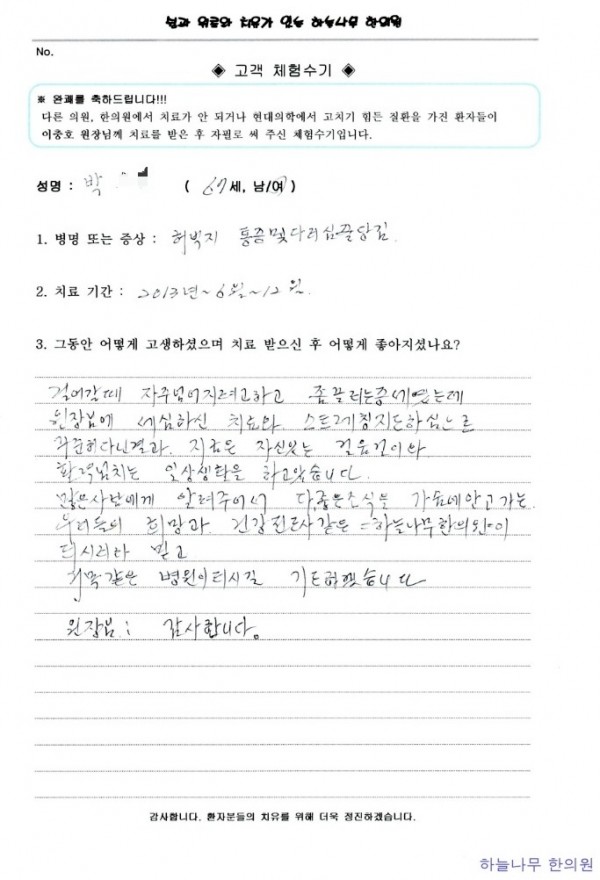 No.
◈ 고객 체험수기 ◈
※ 완쾌를 축하드립니다!!!
다른 의원, 한의원에서 치료가 안 되거나 현대의학에서 고치기 힘든 질환을 가진 환자들이
이충호 원장님께 치료를 받은 후 자필로 써 주신 체험수기입니다.
성명 : 박 ( 67세, 남/여)
1. 병명 또는 증상 : 허벅지 통증및다리심줄당김.
2. 치료 기간 : 2013년~6월~12월.
3. 그동안 어떻게 고생하셨으며 치료 받으신 후 어떻게 좋아지셨나요?
걸어갈때 자주넘어지려고하고 좀끌러는증세였는데
원장님에 세심하신 치료와. 스트레칭지도하심으로
꾸준히다닌결과. 지금은 자신있는 걸음걸이와
활력넘치는 일상생활을 하고있습니다.
많은사람에게 알려주어서 다,좋은소식을 가슴에안고가는.
우리들의 희망과 건강전도사같은=하늘나무한의원=이
되시리라 믿고
거목같은 병원이되시길 기도하겠습니다
원장님: 감사합니다.
감사합니다. 환자분들의 치유를 위해 더욱 정진하겠습니다.
하늘나무 한의원